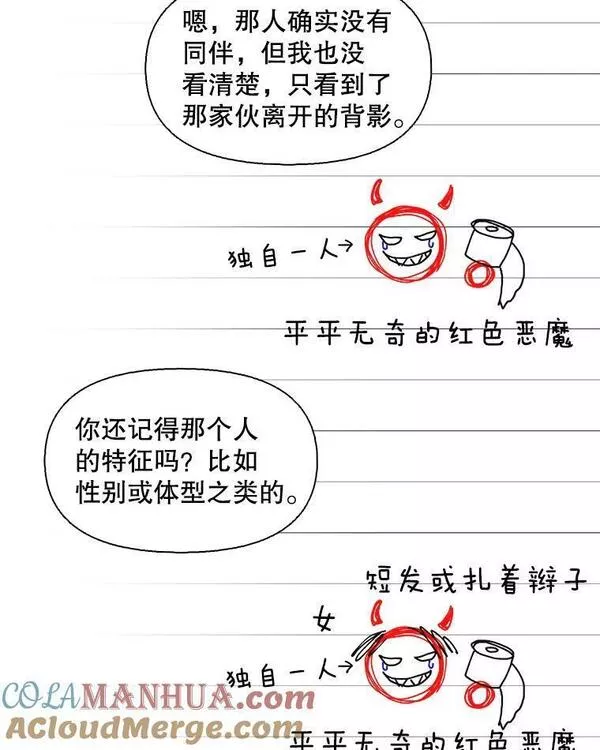 嗯，那人确实没有
同伴，但我也没
看清楚，只看到了
那家伙离开的背影。
独自一人→
平平无奇的红色恶魔
你还记得那个人
的特征吗？比如
性别或体型之类的。
短发或扎着辫子
女
独自一人→
COLAMANHUA.COM
AcloudMerge.com
平平无奇的红色恶魔